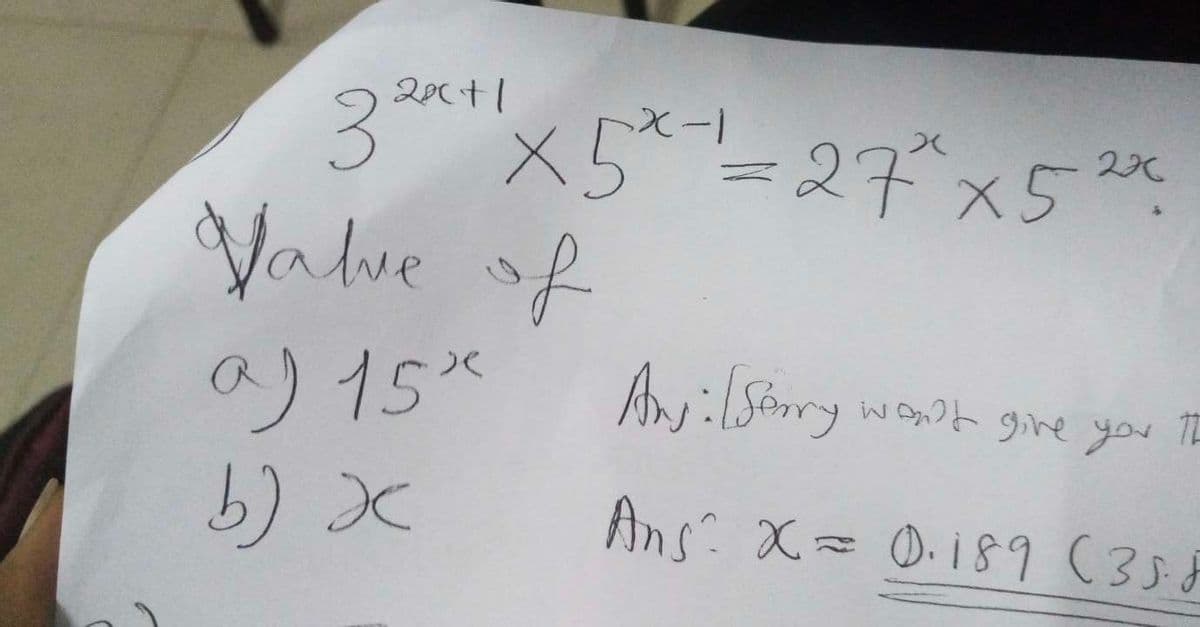 3^{2x+1} × 5^{x-1} = 27^x × 5^{2x}.
Value of
a) 15^x
Ans: [Sorry won't give you
b) x
Ans: x = 0.189 (3 s.f